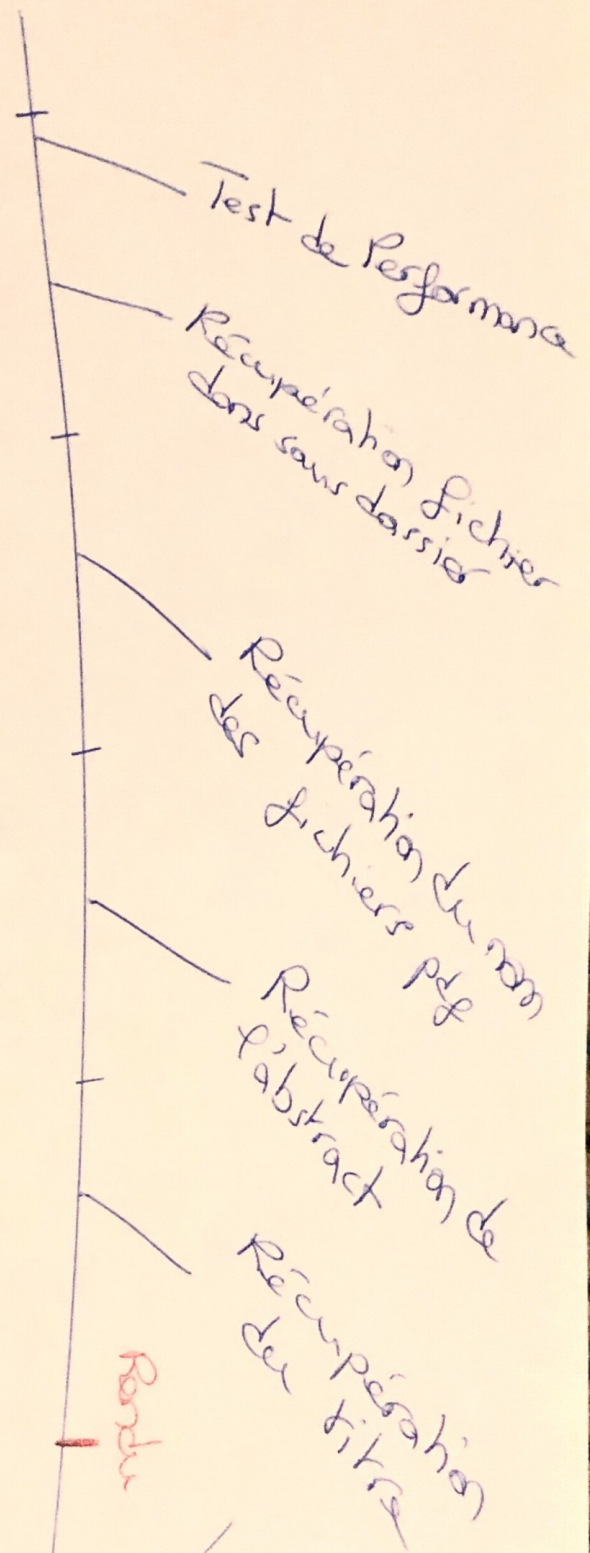 Test de Performance
Récupération fichier
dans sous dossier
Récupération du nom
des fichiers pdf
Récupération de
l'abstract
Récupération
du titre
Rendu